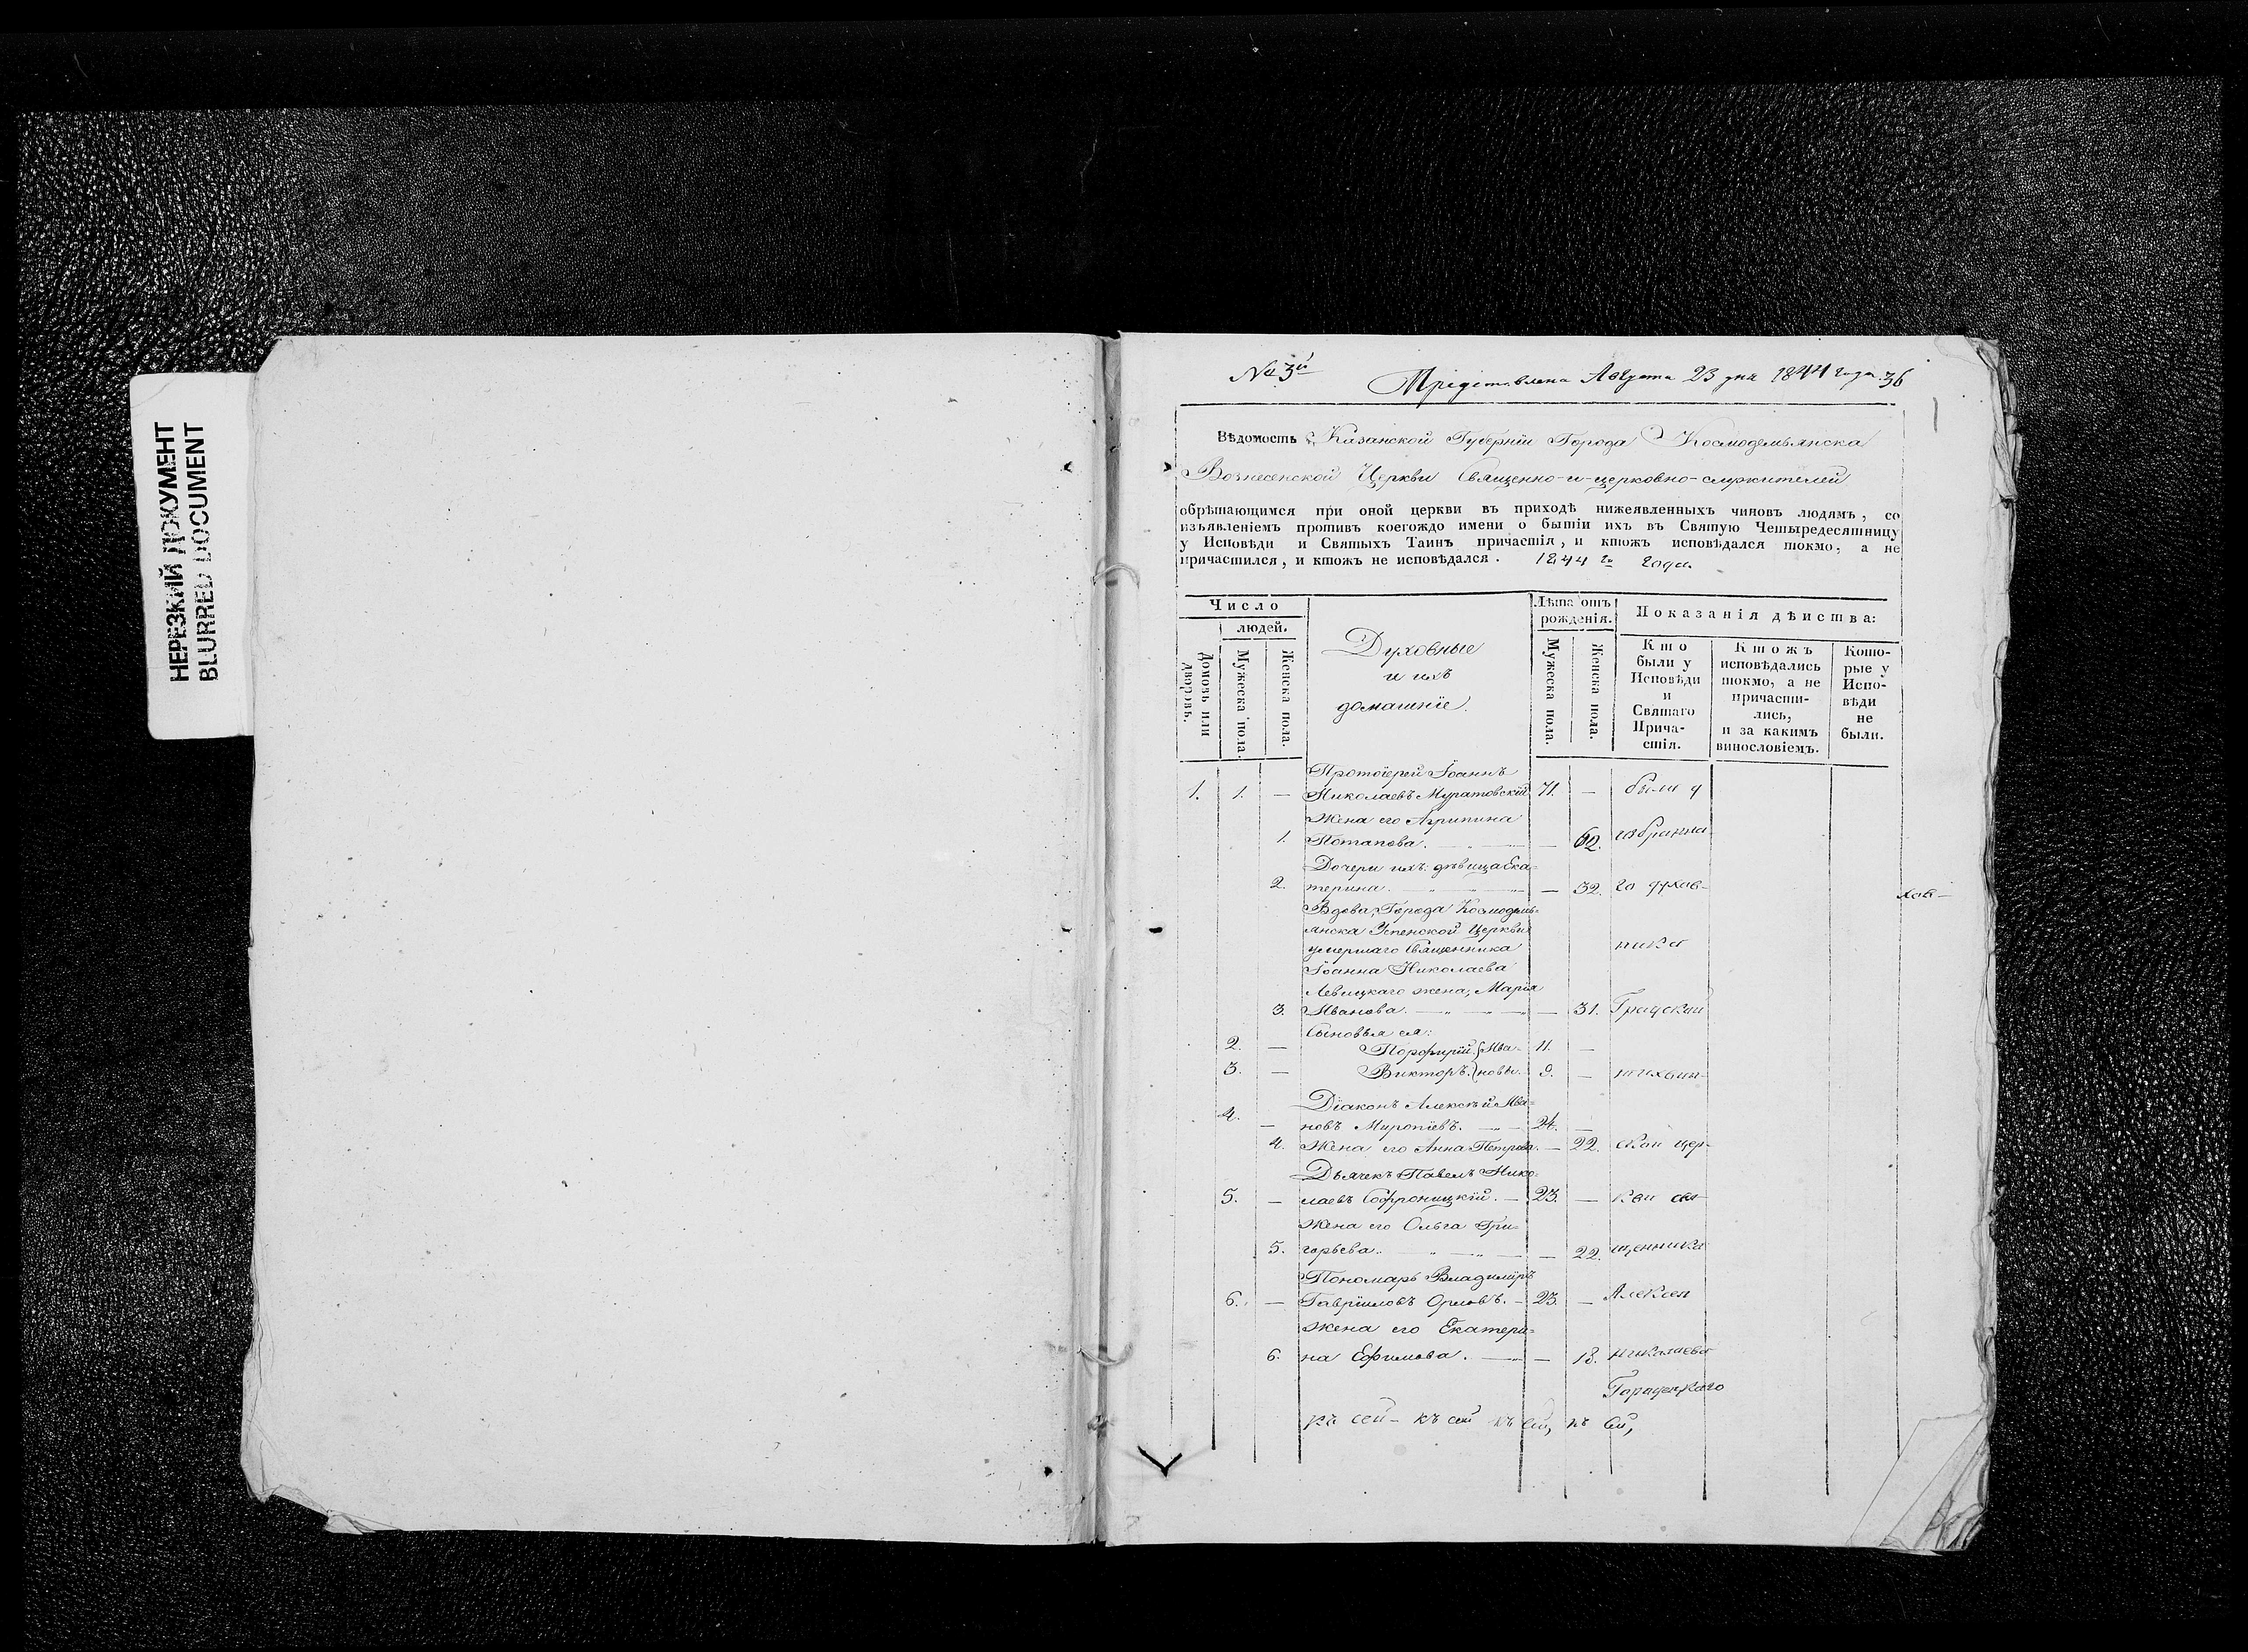 НЕРЕЗКИЙ ДОКУМЕНТ
BLURRED DOCUMENT
№ 3й
Представлена Августа 23 дня 1844 года. 36
Вѣдомость Казанской Губернїи Города Космодемьянска
Вознесенской Церкви Священно-и-церковно-служителей
обрѣтающимся при оной церкви въ приходѣ нижеявленныхъ чиновъ людямъ, со
изъявленіемъ противъ коегождо имени о бытіи ихъ въ Святую Четыредесятницу
у Исповѣди и Святыхъ Таинъ причастія, и ктожъ исповѣдался токмо, а не
причастился, и ктожъ не исповѣдался. 1844 го года.
Число
людей.
Домовъ или дворовъ.
Мужеска пола.
Женска пола.
Духовные
и ихъ
домашнїе.
Лѣта отъ
рожденія.
Мужеска пола.
Женска пола.
Показанія дѣйства:
Кто
были у
Исповѣди
и
Святаго
Прича-
стія.
Ктожъ
исповѣдались
токмо, а не
причасти-
лись,
и за какимъ
винословіемъ.
Кото-
рые у
Испо-
вѣди
не
были.
Протоїерей Їоаннъ
1. 1. — Николаевъ Муратовскїй 71. — были у
Жена его Агрипина
1. Потапова. — 62.
Дочери ихъ: дѣвица Ека=
2. терина. — 32. го духов-
Вдова, Города Космодемь-
янска Успенской Церкви
умершаго Священника ника
Їоанна Николаева
Левицкаго жена, Марїя
3. Иванова. — 31. Градской
Сыновья ея:
2. — Порфирїй. Ива- 11. —
3. — Викторъ. новы. 9. —
4. Дїаконъ Алексѣй Ива=
— новъ Миропїевъ. — 24. —
4. Жена его Анна Петрова. — 22. ской цер-
Дьячекъ Павелъ Нико
5. — лаевъ Софроницкїй. — 23. — кви свя-
Жена его Ольга Гри=
5. горьева. — 22. щенника
Пономарь Владимїръ
6. — Гаврїиловъ Орловъ. — 23. — Алексея
жена его Екатери=
6. на Ефимова. — 18. Николаева
къ сей - къ сей къ сей, къ сей,